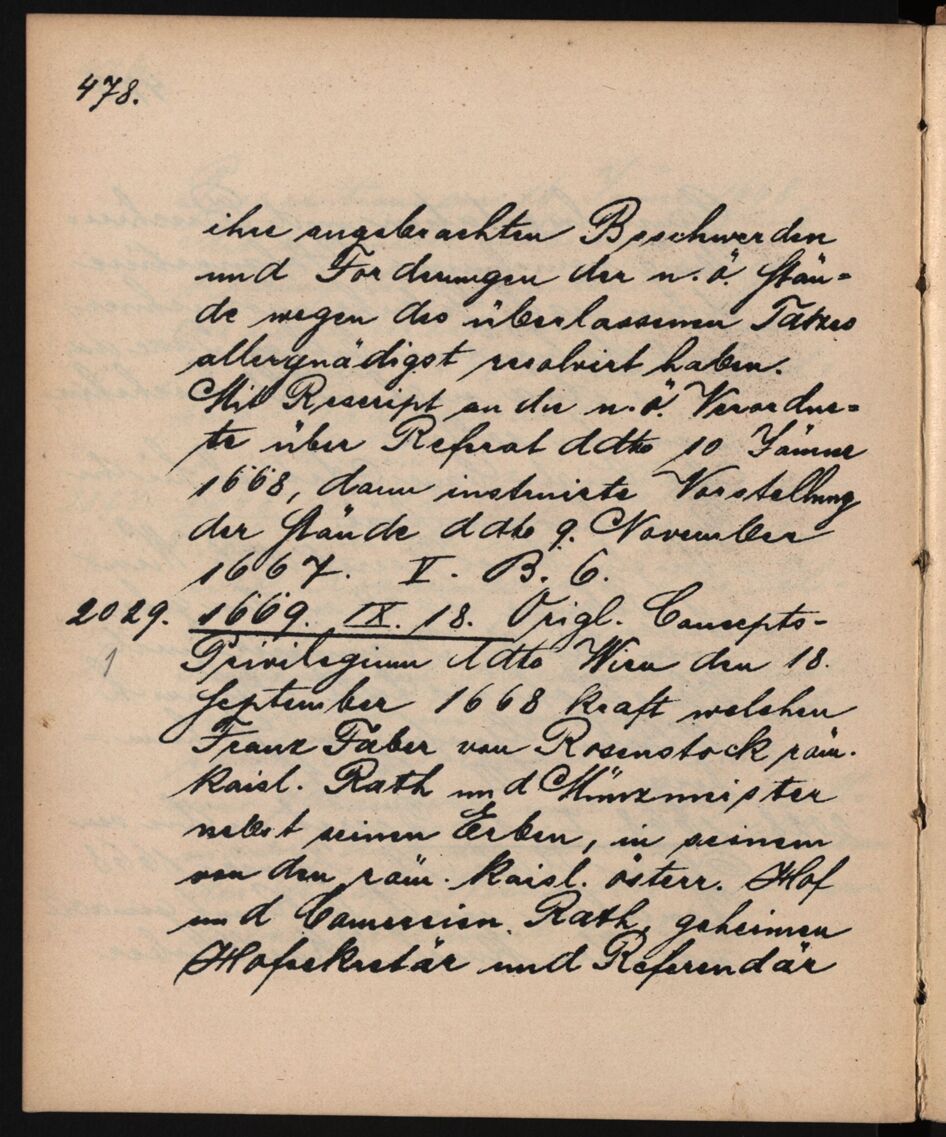 478.
ihre angebrachten Beschwerden
und Forderungen der n. ö. Stän=
de wegen des überlassenen Tatzes
allergnädigst resolvirt haben.
Mit Rescript an die n. ö. Verordne=
te über Referat ddto 10 Jänner
1668, dann instruirte Vorstellung
der Stände ddto 9. November
1667. V. B. 6.
2029. 1669. IX. 18. Origl. Concepts-
1 Privilegium ddto Wien den 18.
September 1668 kraft welchen
Franz Faber von Rosenstock röm.
kaisl. Rath und Münzmeister
nebst seinen Erben, in seinem
von den röm. kaisl. österr. Hof
und Comercien. Rath, geheimen
Hofsekretär und Referendär